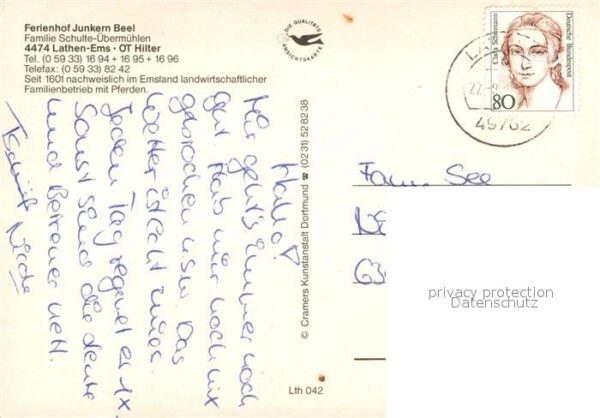 Ferienhof Junkern Beel
Familie Schulte-Übermühlen
4474 Lathen-Ems · OT Hilter
Tel. (0 59 33) 16 94 + 16 95 + 16 96
Telefax: (0 59 33) 82 42
Seit 1601 nachweislich im Emsland landwirtschaftlicher
Familienbetrieb mit Pferden.
DIE QUALITÄTS
ANSICHTSKARTE
Clara Schumann
Deutsche Bundespost
80
49762
Hallo!
Mir geht's immer noch
gut. Hab mir noch nix
gebrochen usw. Das
Wetter ist echt
Jeden Tag regnet es 1x.
Sonst sind die Leute
und Betreuer nett.
Tschüß
© Cramers Kunstanstalt Dortmund ☎ (0231) 528238
Lth 042
Fam. See
privacy protection
Datenschutz